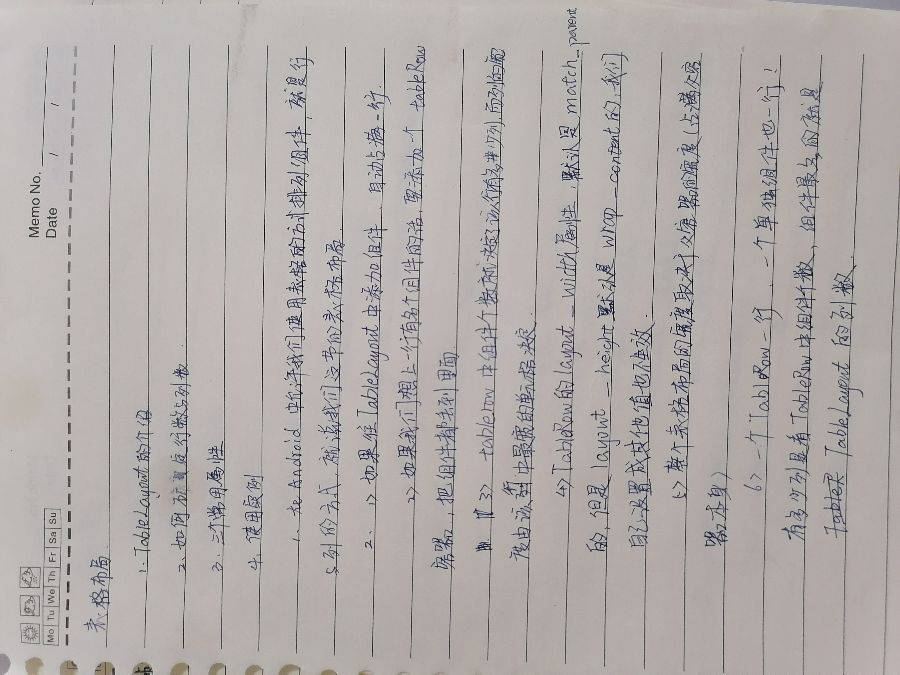 Memo No.
Date / /
Mo Tu We Th Fr Sa Su
表格布局
1. TableLayout的介绍
2. 如何确定行数与列数
3. 三个常用属性
4. 使用实例
1. 在Android中允许我们使用表格的方式排列组件，就是行
与列的方式，就说我们这节的表格布局.
2. 1> 如果往TableLayout中添加组件，自动占满一行.
2> 如果我们想上一行有多个组件的话，要添加一个 tableRow
容器，把组件都丢到里面
3> tablerow 中组件个数所决定了该行有多少列，而列的宽
度由该列中最宽的单元格决定
4> TableRow的layout_width属性，默认是 match_parent
的，但是 layout_height 默认是 wrap_content的，我们
自己设置成其他值也不生效.
5> 整个表格布局的宽度取决于父容器的宽度（占满父容
器本身）
6> 一个TableRow一行，一个单独组件也一行！
有多少列是看TableRow中组件个数，组件最多的就是
TableLayout 的列数.